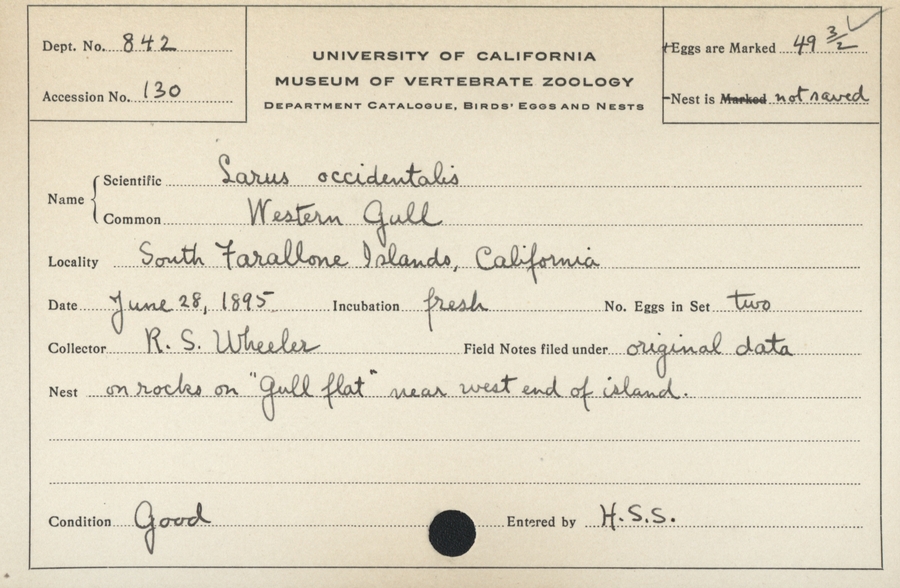 Dept. No. 842
Accession No. 130
UNIVERSITY OF CALIFORNIA
MUSEUM OF VERTEBRATE ZOOLOGY
DEPARTMENT CATALOGUE, BIRDS' EGGS AND NESTS
Eggs are Marked 49 3/2
Nest is Marked not saved
Name
Scientific Larus occidentalis
Common Western Gull
Locality South Farallone Islands, California
Date June 28, 1895 Incubation fresh No. Eggs in Set two
Collector R. S. Wheeler Field Notes filed under original data
Nest on rocks on "Gull flat" near west end of island.
Condition Good Entered by H.S.S.